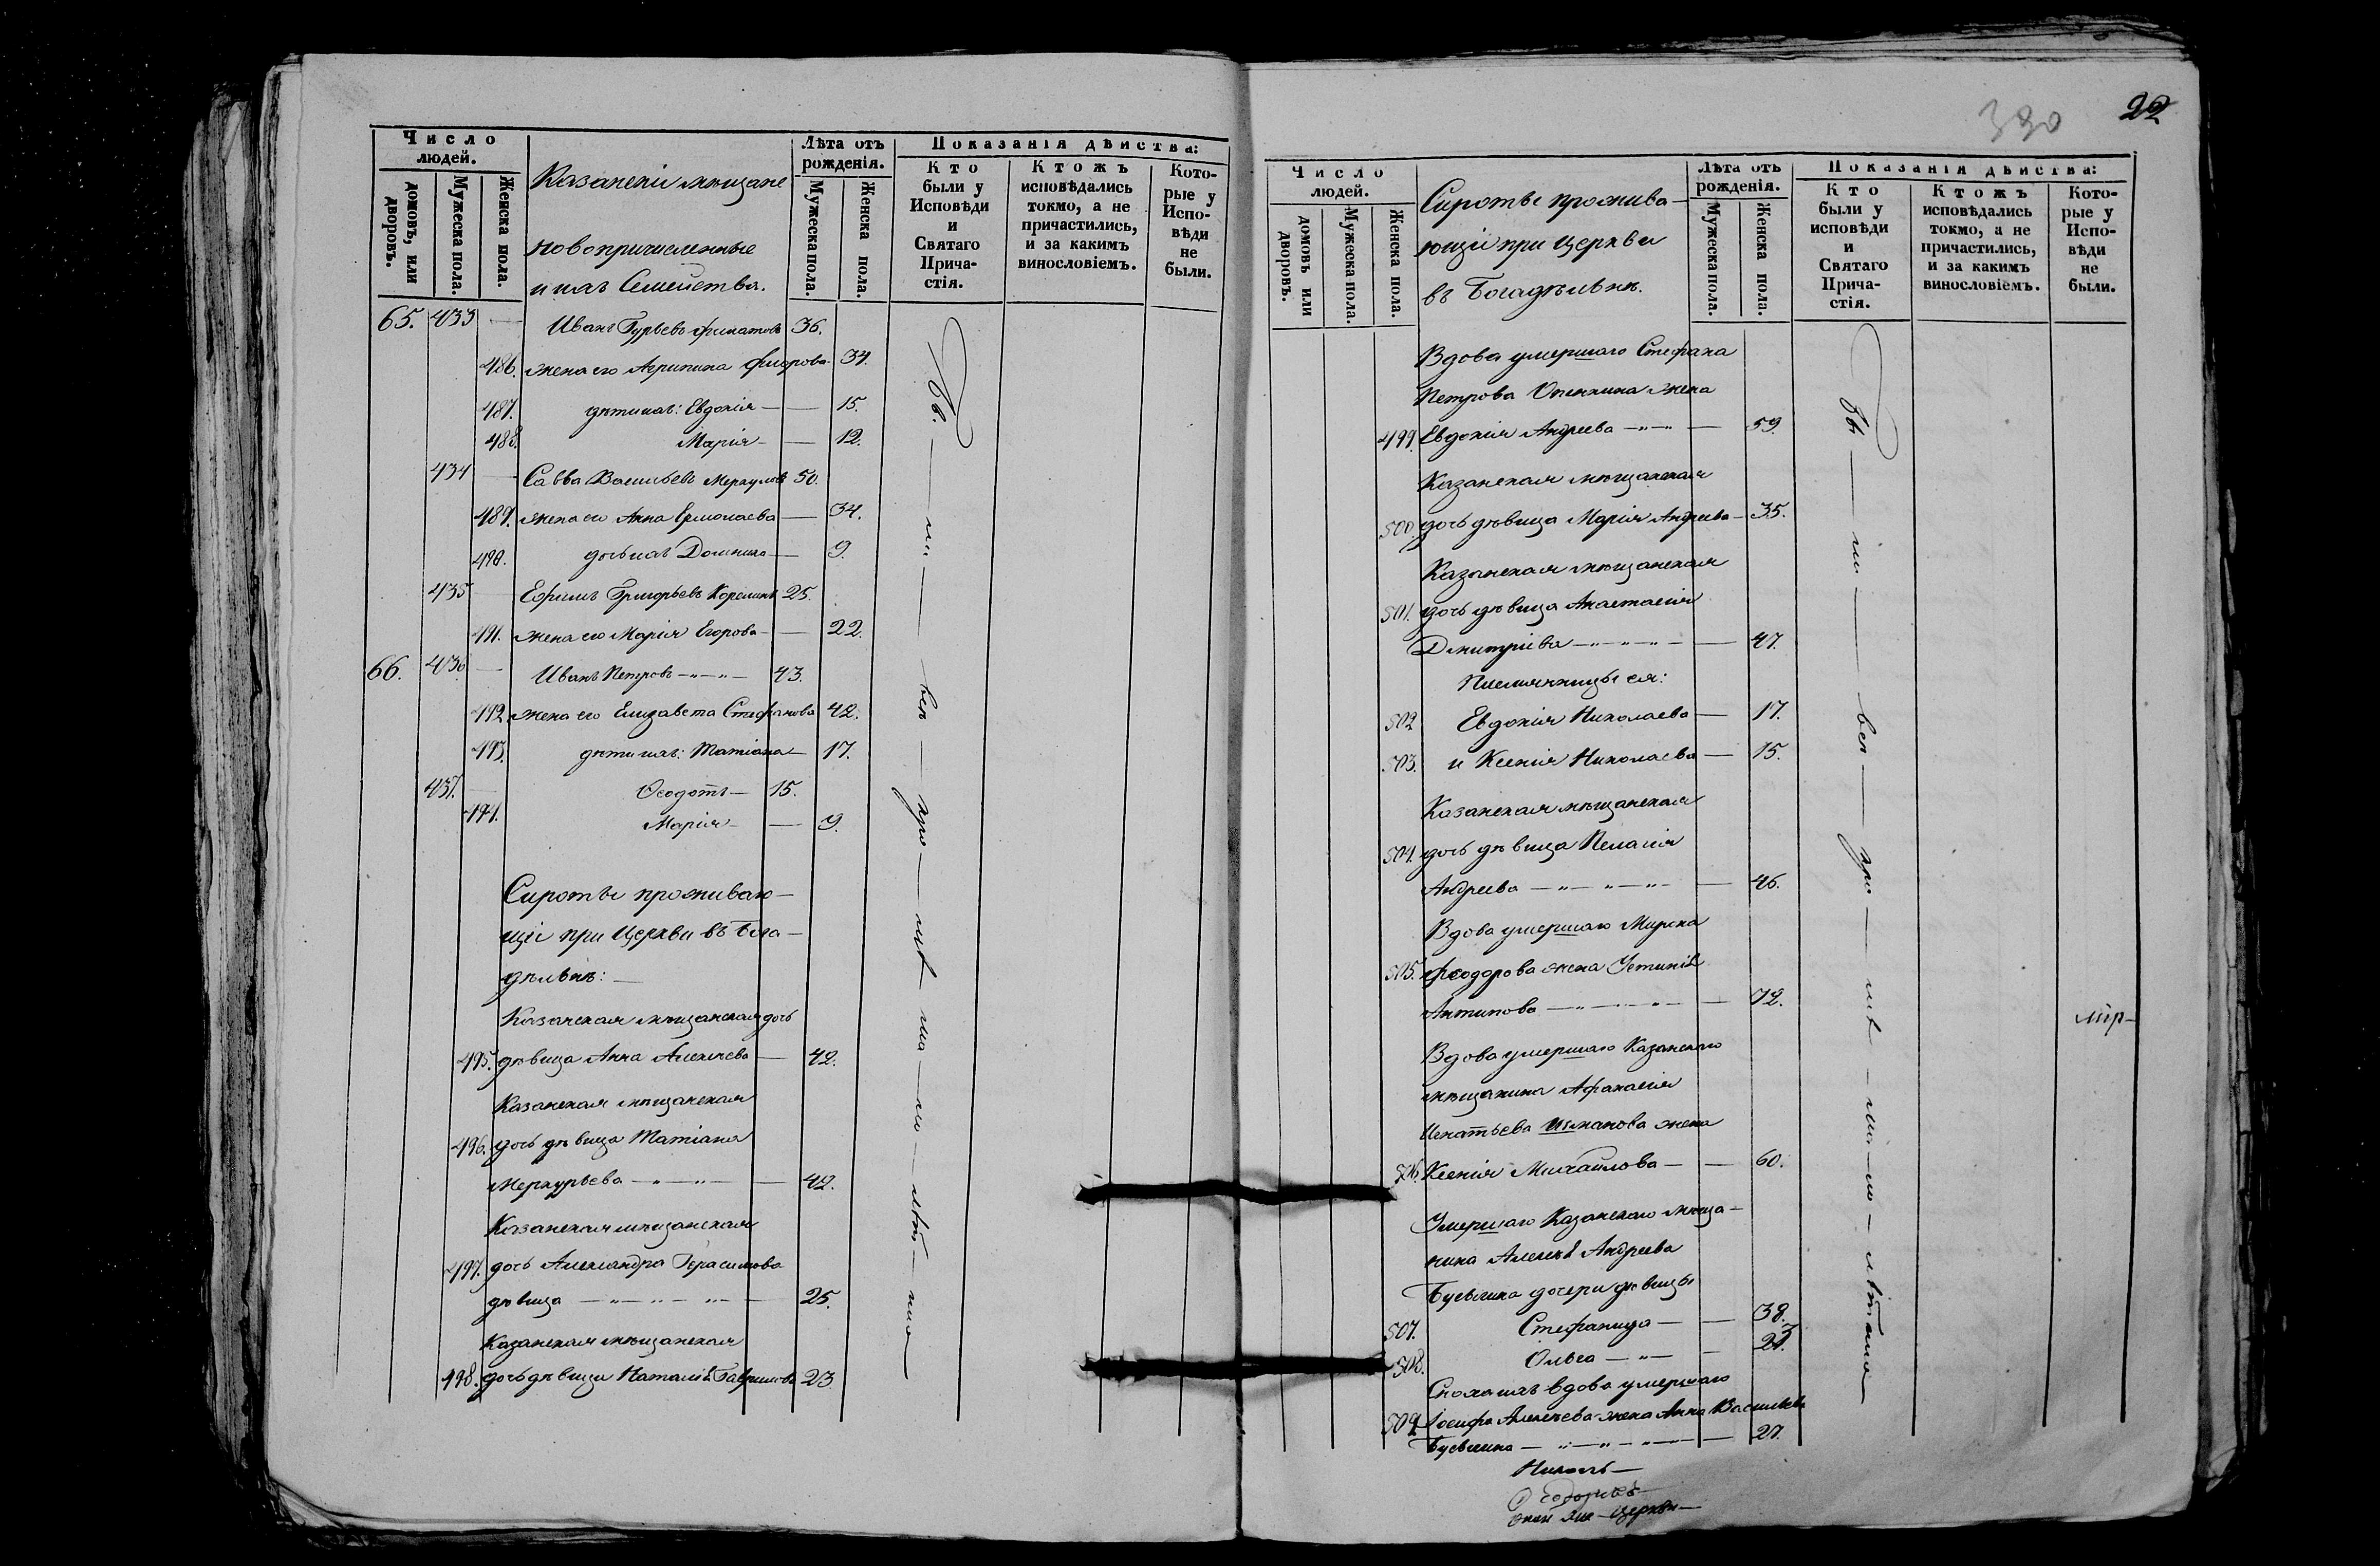 Число людей.
домовъ, или дворовъ.
Мужеска пола.
Женска пола.
Казанскіи мѣщане
новопричисленные
и ихъ Семейства.
Лѣта отъ рожденія.
Мужеска пола.
Женска пола.
Показанія дѣйства:
Кто были у Исповѣди и Святаго Прича-стія.
Ктожъ исповѣдались токмо, а не причастились, и за какимъ винословіемъ.
Кото-рые у Испо-вѣди не были.
65. 433 — Иванъ Гурьевъ Филатовъ 36.
486. жена его Агрипина Флорова 34.
487. дѣти ихъ: Евдокія — — 15.
488. Марія — — 12.
434 — Савва Васильевъ Меркуловъ 50.
489. жена его Анна Ермолаева — 34.
490. дочь ихъ Домника — 9.
435 — Ефимъ Григорьевъ Корелинъ 25.
491. жена его Марія Егорова — — 22.
66. 436 — Иванъ Петровъ —„—„— 43.
492. жена его Елизавета Стефанова 42.
493. дѣти ихъ: Татіана — 17.
437. — Ѳеодотъ — 15.
494. Марія — — 9.
Сироты проживаю-
щіе при Церкви въ Бога-
дѣльнѣ: —
Казанская мѣщанская дочь
495. дѣвица Анна Алексѣева — 42.
Казанская мѣщанская
496. дочь дѣвица Татіана
Меркурьева —„—„— — 42.
Казанская мѣщанская
497. дочь Александра Герасимова
дѣвица —„—„—„— — 25.
Казанская мѣщанская
498. дочь дѣвица Наталія Гаврилова 23
330
22
Число людей.
домовъ или дворовъ.
Мужеска пола.
Женска пола.
Сироты прожива-
ющіе при Церкви
въ Богадѣльнѣ.
Лѣта отъ рожденія.
Мужеска пола.
Женска пола.
Показанія дѣйства:
Кто были у исповѣди и Святаго Прича-стія.
Ктожъ исповѣдались токмо, а не причастились, и за какимъ винословіемъ.
Кото-рые у Испо-вѣди не были.
Вдова умершаго Стефана
Петрова Опенкина жена
499. Евдокія Андреева —„—„— — 59.
Казанская мѣщанская
500. дочь дѣвица Марія Андреева — 35.
Казанская мѣщанская
501. дочь дѣвица Анастасія
Димитріева —„—„—„— — 47.
Племянницы ея:
502 Евдокія Николаева — 17.
503. и Ксенія Николаева — 15.
Казанская мѣщанская
504. дочь дѣвица Пелагія
Андреева —„—„—„— — 46.
Вдова умершаго Мирона
505. Ѳеодорова жена Устинія
Антипова —„—„—„— — 72.
Вдова умершаго Казанскаго
мѣщанина Афанасія
Игнатьева жена
506. Ксенія Михайлова — — 60.
Умершаго Казанскаго мѣща-
нина Алексѣя Андреева
дочери дѣвицы
507. Стефанида — — 38.
508. Ольга —„— — 27.
Сноха ихъ вдова умершаго
509. Іосифа Алексѣева жена Анна Васильева
—„—„—„— — 27.
церкви —